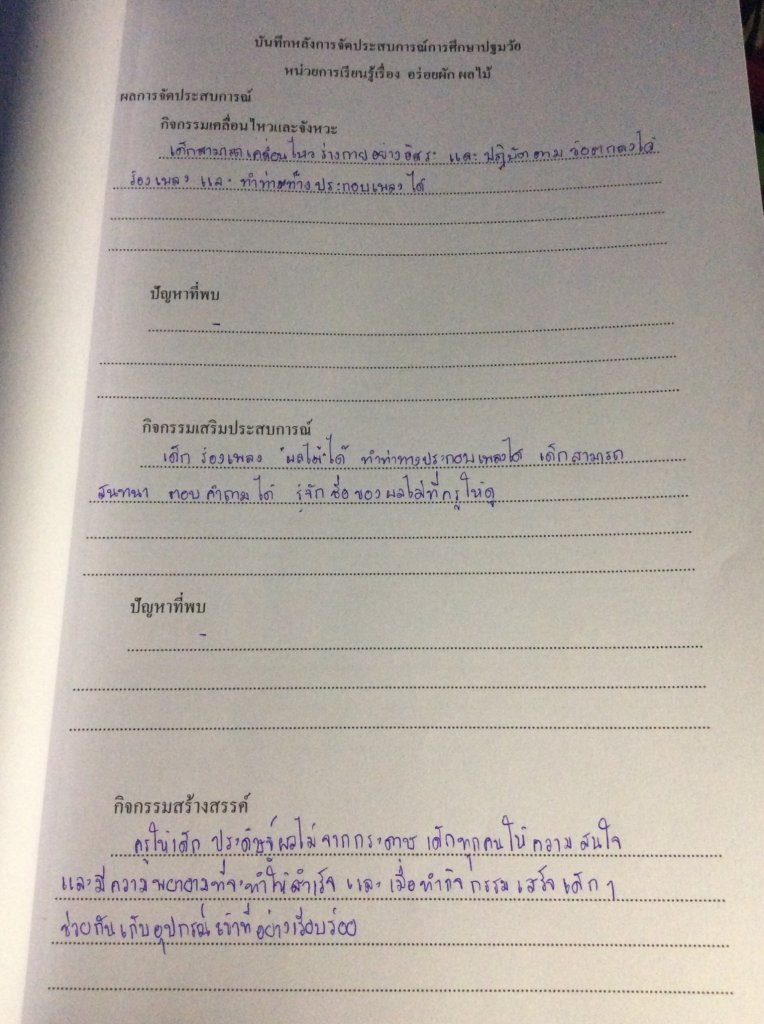 บันทึกหลังการจัดประสบการณ์การศึกษาปฐมวัย
หน่วยการเรียนรู้เรื่อง อร่อยผัก ผลไม้
ผลการจัดประสบการณ์
กิจกรรมเคลื่อนไหวและจังหวะ
เด็กสามารถเคลื่อนไหวร่างกายอย่างอิสระ และ ปฏิบัติตามข้อตกลงได้
ร้องเพลง และ ทำท่าทางประกอบเพลงได้
ปัญหาที่พบ
-
กิจกรรมเสริมประสบการณ์
เด็กร้องเพลง "ผลไม้" ได้ ทำท่าทางประกอบเพลงได้ เด็กสามารถ
สนทนา ตอบคำถามได้ รู้จักชื่อของผลไม้ที่ครูให้ดู
ปัญหาที่พบ
-
กิจกรรมสร้างสรรค์
ครูให้เด็กประดิษฐ์ผลไม้จากกระดาษ เด็กทุกคนให้ความสนใจ
และมีความพยายามที่จะทำให้สำเร็จ และ เมื่อทำกิจกรรมเสร็จเด็กๆ
ช่วยกันเก็บอุปกรณ์เข้าที่อย่างเรียบร้อย